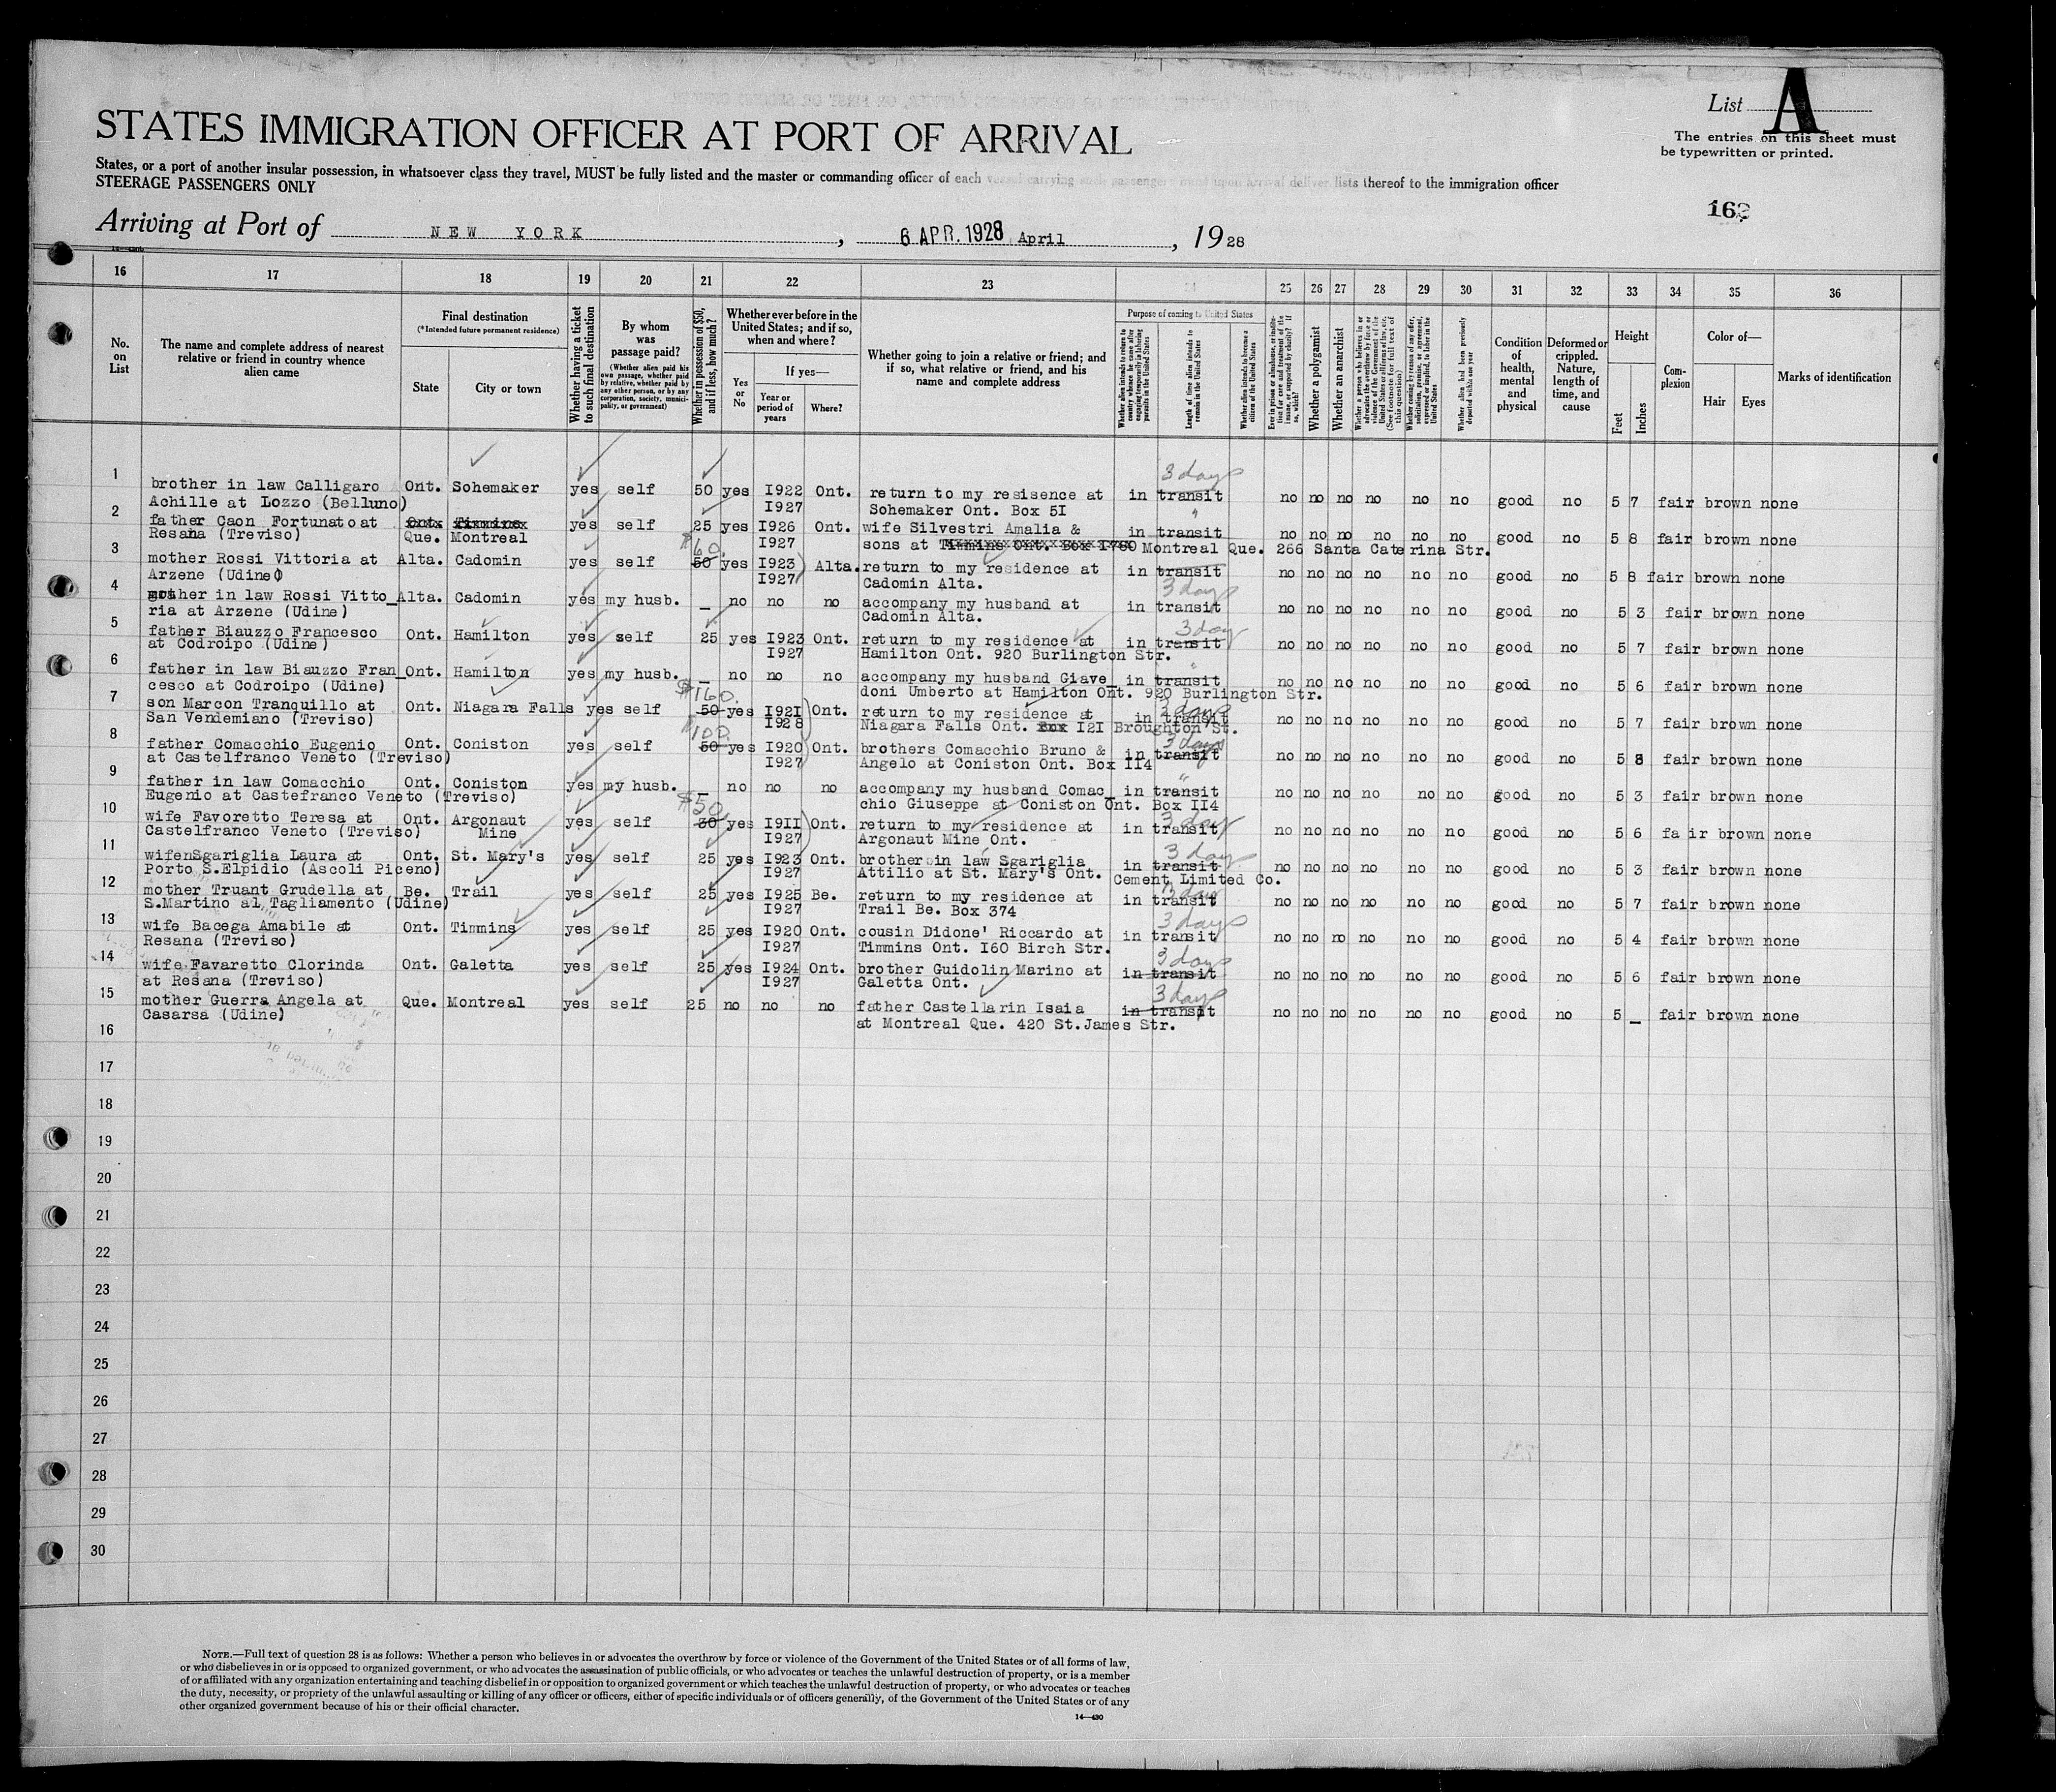 List A
The entries on this sheet must
be typewritten or printed.
STATES IMMIGRATION OFFICER AT PORT OF ARRIVAL
States, or a port of another insular possession, in whatsoever class they travel, MUST be fully listed and the master or commanding officer of each vessel carrying such passengers must upon arrival deliver lists thereof to the immigration officer
STEERAGE PASSENGERS ONLY
Arriving at Port of NEW YORK, 6 APR. 1928 April, 1928
16 17 18 19 20 21 22 23 24 25 26 27 28 29 30 31 32 33 34 35 36
No. on List
The name and complete address of nearest relative or friend in country whence alien came
Final destination
(*Intended future permanent residence)
State
City or town
Whether having a ticket to such final destination
By whom was passage paid?
(Whether alien paid his own passage, whether paid by relative, whether paid by any other person, or by any corporation, society, municipality, or government)
Whether in possession of $50, and if less, how much?
Whether ever before in the United States; and if so, when and where?
Yes or No
If yes—
Year or period of years
Where?
Whether going to join a relative or friend; and if so, what relative or friend, and his name and complete address
Purpose of coming to United States
Length of time alien intends to remain in the United States
Whether alien intends to become a citizen of the United States
Whether a polygamist
Whether an anarchist
Condition of health, mental and physical
Deformed or crippled. Nature, length of time, and cause
Height
Feet
Inches
Complexion
Color of—
Hair
Eyes
Marks of identification
1 brother in law Calligaro Ont. Sohemaker yes self 50 yes I922 Ont. return to my resisence at in transit 3 days no no no no no no good no 5 7 fair brown none
Achille at Lozzo (Belluno) I927 Sohemaker Ont. Box 5I
2 father Caon Fortunato at Ont. Timmins yes self 25 yes I926 Ont. wife Silvestri Amalia & in transit " no no no no no no good no 5 8 fair brown none
Resana (Treviso) Que. Montreal I927 sons at Timmins Ont. Box I780 Montreal Que. 266 Santa Caterina Str.
3 mother Rossi Vittoria at Alta. Cadomin yes self 50 $60. yes I923 Alta. return to my residence at in transit no no no no no no good no 5 8 fair brown none
Arzene (Udine) I927 Cadomin Alta.
4 mother in law Rossi Vitto_ Alta. Cadomin yes my husb. _ no no no accompany my husband at in transit 3 days no no no no no no good no 5 3 fair brown none
ria at Arzene (Udine) Cadomin Alta.
5 father Biauzzo Francesco Ont. Hamilton yes self 25 yes I923 Ont. return to my residence at in transit 3 day no no no no no no good no 5 7 fair brown none
at Codroipo (Udine) I927 Hamilton Ont. 920 Burlington Str.
6 father in law Biauzzo Fran_ Ont. Hamilton yes my husb. _ no no no accompany my husband Giave_ in transit " no no no no no no good no 5 6 fair brown none
cesco at Codroipo (Udine) doni Umberto at Hamilton Ont. 920 Burlington Str.
7 son Marcon Tranquillo at Ont. Niagara Falls yes self 50 $160. yes I92I Ont. return to my residence at in transit 3 days no no no no no no good no 5 7 fair brown none
San Vendemiano (Treviso) I928 Niagara Falls Ont. Box I2I Broughton St.
8 father Comacchio Eugenio Ont. Coniston yes self 50 $100. yes I920 Ont. brothers Comacchio Bruno & in transit 3 days no no no no no no good no 5 8 fair brown none
at Castelfranco Veneto (Treviso) I927 Angelo at Coniston Ont. Box II4
9 father in law Comacchio Ont. Coniston yes my husb. _ no no no accompany my husband Comac_ in transit " no no no no no no good no 5 3 fair brown none
Eugenio at Castefranco Veneto (Treviso) chio Giuseppe at Coniston Ont. Box II4
10 wife Favoretto Teresa at Ont. Argonaut yes self 30 $50. yes I9II Ont. return to my residence at in transit 3 day no no no no no no good no 5 6 fa ir brown none
Castelfranco Veneto (Treviso) Mine I927 Argonaut Mine Ont.
11 wifenSgariglia Laura at Ont. St. Mary's yes self 25 yes I923 Ont. brother in law Sgariglia in transit 3 days no no no no no no good no 5 3 fair brown none
Porto S.Elpidio (Ascoli Piceno) I927 Attilio at St. Mary's Ont. Cement Limited Co.
12 mother Truant Grudella at Be. Trail yes self 25 yes I925 Be. return to my residence at in transit 3 day no no no no no no good no 5 7 fair brown none
S.Martino al Tagliamento (Udine) I927 Trail Be. Box 374
13 wife Bacega Amabile at Ont. Timmins yes self 25 yes I920 Ont. cousin Didone' Riccardo at in transit 3 days no no no no no no good no 5 4 fair brown none
Resana (Treviso) I927 Timmins Ont. I60 Birch Str.
14 wife Favaretto Clorinda Ont. Galetta yes self 25 yes I924 Ont. brother Guidolin Marino at in transit 3 days no no no no no no good no 5 6 fair brown none
at Resana (Treviso) I927 Galetta Ont.
15 mother Guerra Angela at Que. Montreal yes self 25 no no no father Castellarin Isaia in transit 3 days no no no no no no good no 5 _ fair brown none
Casarsa (Udine) at Montreal Que. 420 St.James Str.
16
17
18
19
20
21
22
23
24
25
26
27
28
29
30
NOTE.—Full text of question 28 is as follows: Whether a person who believes in or advocates the overthrow by force or violence of the Government of the United States or of all forms of law,
or who disbelieves in or is opposed to organized government, or who advocates the assassination of public officials, or who advocates or teaches the unlawful destruction of property, or is a member
of or affiliated with any organization entertaining and teaching disbelief in or opposition to organized government or which teaches the unlawful destruction of property, or who advocates or teaches
the duty, necessity, or propriety of the unlawful assaulting or killing of any officer or officers, either of specific individuals or of officers generally, of the Government of the United States or of any
other organized government because of his or their official character.
14—430